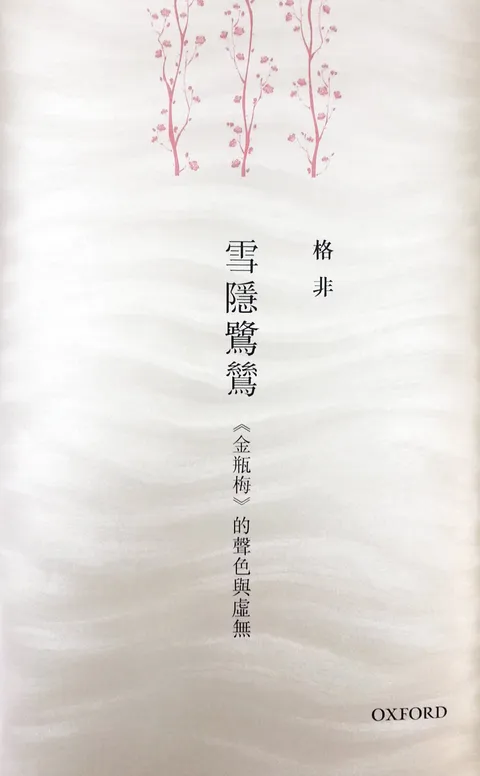 格非
雪隱鷺鷥
《金瓶梅》的聲色與虛無
OXFORD